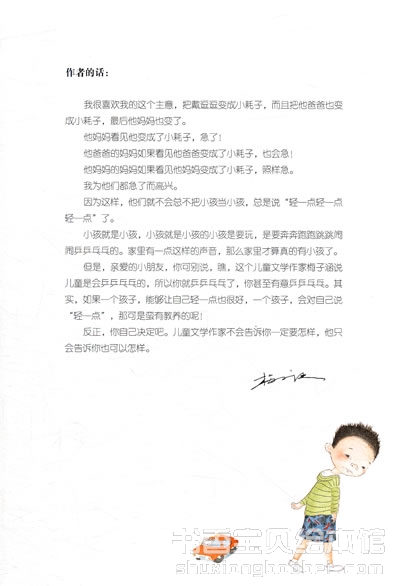 作者的话：
我很喜欢我的这个主意，把戴逗逗变成小耗子，而且把他爸爸也变
成小耗子，最后他妈妈也变了。
他妈妈看见他变成了小耗子，急了！
他爸爸的妈妈如果看见他爸爸变成了小耗子，也会急！
他妈妈的妈妈如果看见他妈妈变成了小耗子，照样急。
我为他们都急了而高兴。
因为这样，他们就不会总不把小孩当小孩，总是说“轻一点轻一点
轻一点”了。
小孩就是小孩，小孩就是小孩的小孩是要玩，是要奔奔跑跑跳跳闹
闹乒乒乓乓的。家里有一点这样的声音，那么家里才算真的有小孩了。
但是，亲爱的小朋友，你可别说，瞧，这个儿童文学作家梅子涵说
儿童是会乒乒乓乓的，所以你就乒乒乓乓了，你甚至有意乒乒乓乓。其
实，如果一个孩子，能够让自己轻一点也很好，一个孩子，会对自己说
“轻一点”，那可是蛮有教养的呢！
反正，你自己决定吧。儿童文学作家不会告诉你一定要怎样，他只
会告诉你也可以怎样。
书香宝贝绘本馆
shuxiangbaobei.com